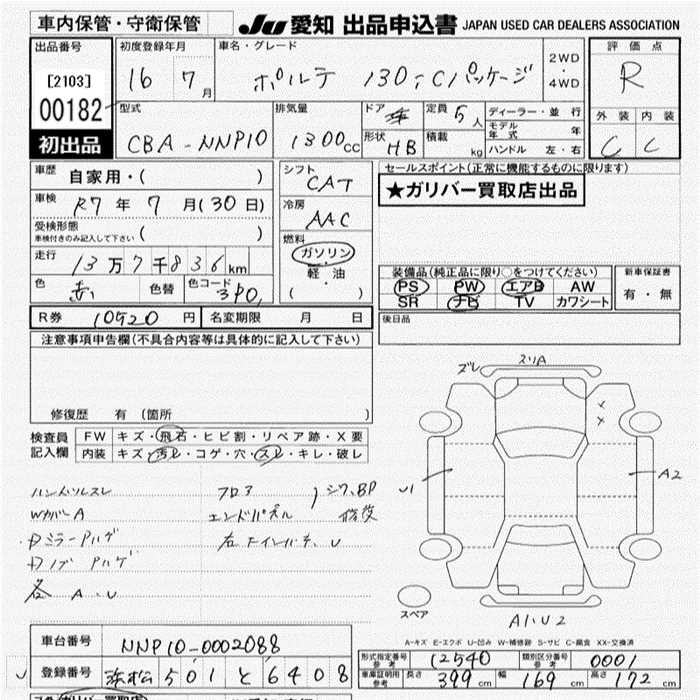 車内保管・守衛保管
JU 愛知 出品申込書 JAPAN USED CAR DEALERS ASSOCIATION
出品番号 [2103] 00182 初出品
初度登録年月 16 7月
車名・グレード ポルテ 130i Cパッケージ
2WD・4WD
評価点 R
外装 C 内装 C
型式 CBA-NNP10
排気量 1300cc
ドア
形状 HB
定員 5人
積載 kg
ディーラー・並行
モデル年式 年
ハンドル 左・右
車歴 自家用・( )
車検 R7年7月(30日)
受検形態 車検付きのみ記入して下さい ( )
走行 13万7千836km
色 赤 色替 色コード 3P0
シフト CAT
冷房 AAC
燃料 ガソリン・軽油 ( )
セールスポイント(正常に機能するものに限ります)
★ガリバー買取店出品
装備品(純正品に限り○をつけてください)
PS PW エアB AW
SR ナビ TV カワシート
新車保証書 有・無
R券 10520円 名変期限 月 日
後日品
注意事項申告欄(不具合内容等は具体的に記入して下さい)
修復歴 有 (箇所 )
検査員記入欄
FW キズ・飛石・ヒビ割・リペア跡・X要
内装 キズ・汚レ・コゲ・穴・スレ・キレ・破レ
ハンドルスレ
WカバーA
Dミラー Pハゲ
Dノブ Pハゲ
各 A.U
フロア
エンドパネル
シワ、BP
修復
右 インパネ、U
ズレ スリA
U1
A2
A1、U2
スペア
A-キズ E-エクボ U-凹み W-補修跡 S-サビ C-腐食 XX-交換済
車台番号 NNP10-0002088
登録番号 浜松 501 と 6408
形式指定番号 参考 12540 類別区分番号 参考 0001
車庫証明用 参考 長さ 399cm 幅 169cm 高さ 172cm